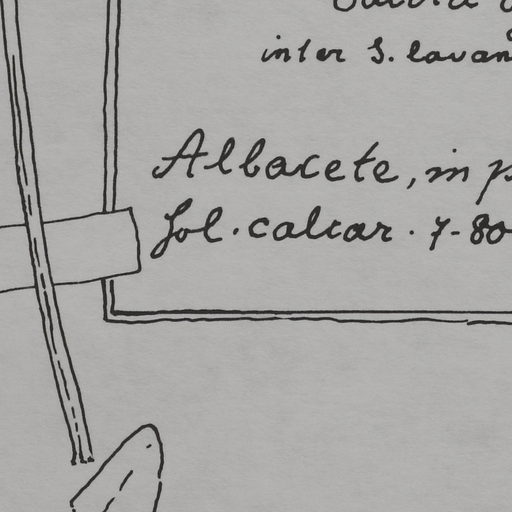 inter S. lavan
Albacete, in p
Sol. calcar. 7-80